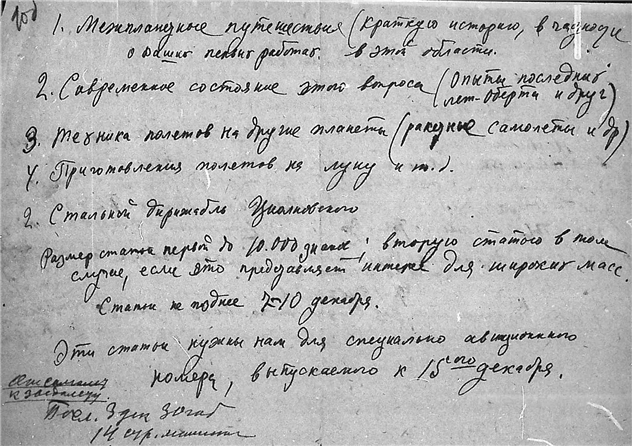 1. Межпланетные путешествия (краткую историю, в частности
о Ваших первых работах в этой области.
2. Современное состояние этого вопроса (Опыты последних
лет - Оберта и друг)
3. Техника полетов на другие планеты (ракетные самолеты и др)
4. Приготовления полетов на луну и т.д.
2. Стальной дирижабль Циолковского
Размер статьи первой до 10.000 знаков, вторую статью в том
случае, если это представляет интерес для широких масс.
Статьи не позднее 7-10 декабря.
Эти статьи нужны нам для специально авиационного
номера, выпускаемого к 15ого декабря.
Посл. 3 дек 30 год
14 стр.